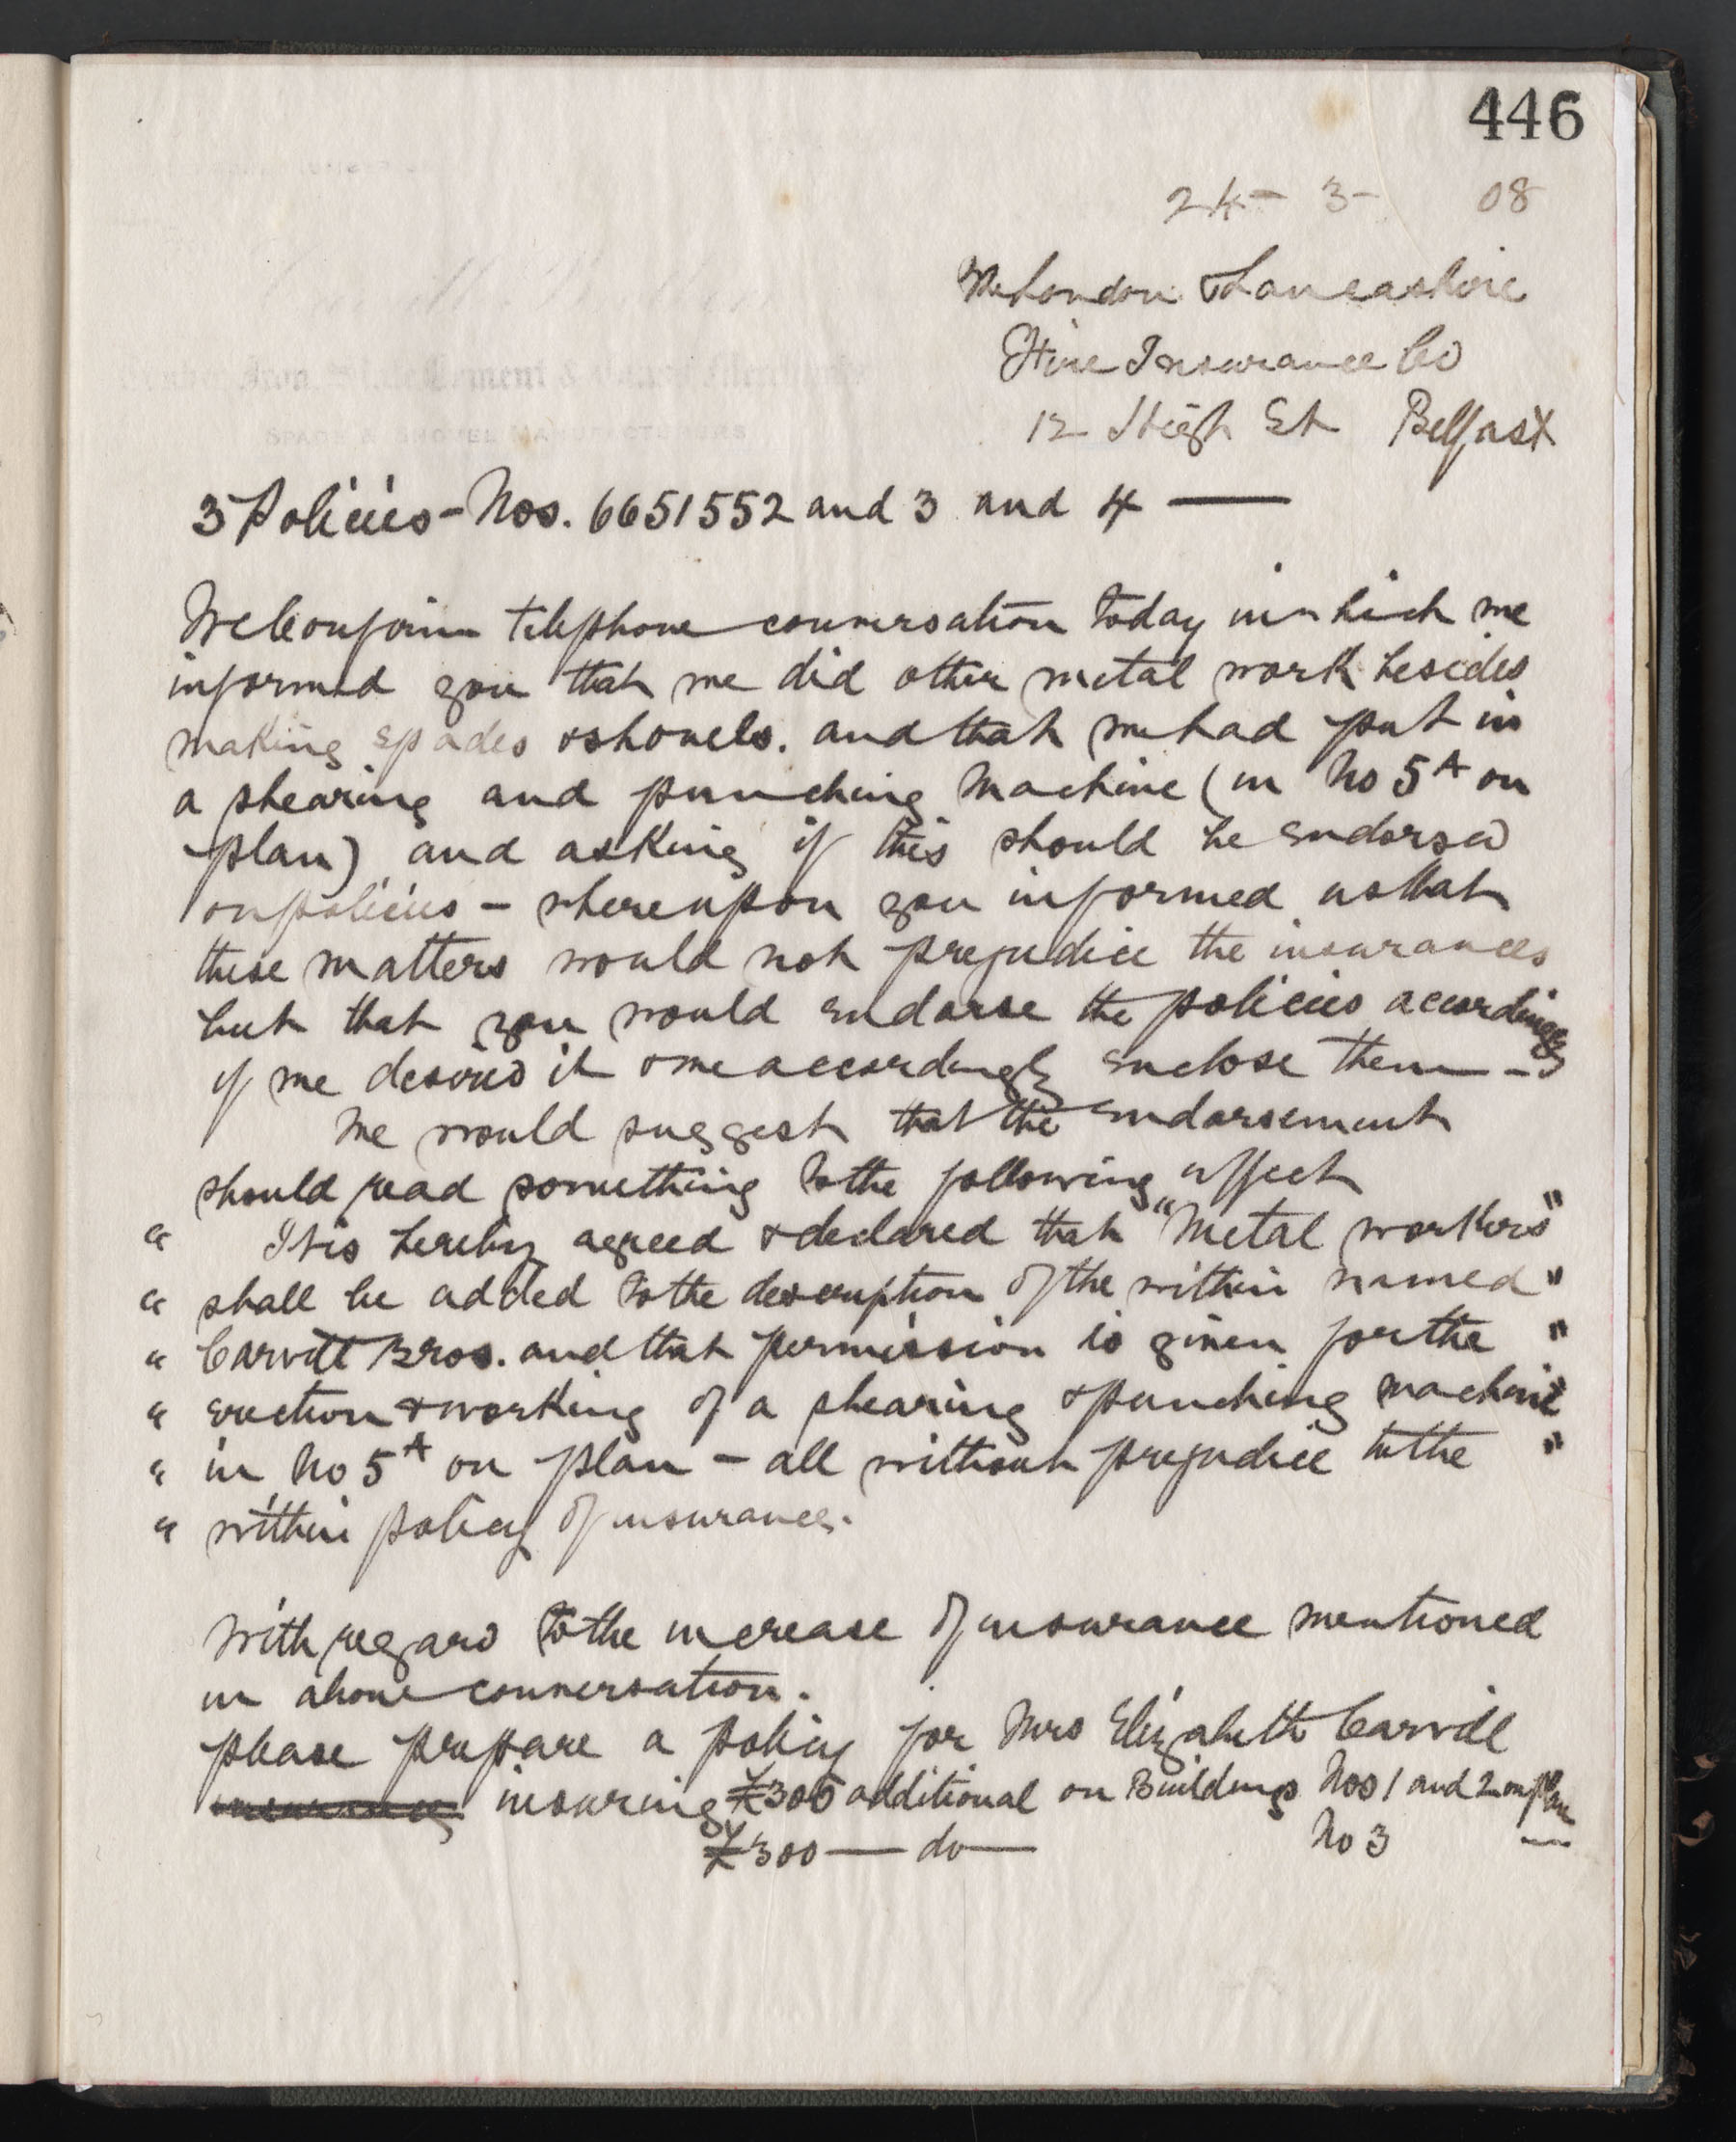 446
24 - 3 - 08
The London & Lancashire
Fire Insurance Co
12 High St Belfast
3 Policies - Nos. 6651552 and 3 and 4 —
We Confirm telephone conversation today in which we
informed you that we did other metal work besides
making spades & shovels. and that we had put in
a shearing and punching machine (in No 5A on
plan) and asking if this should be endorsed
on policies - whereupon you informed us that
these matters would not prejudice the insurances
but that you would endorse the policies accordingly
if we desired it & we accordingly enclose them -
We would suggest that the endorsement
should read something to the following effect
" It is hereby agreed & declared that "Metal workers"
" shall be added to the description of the within named "
" Carvill Bros. and that permission is given for the "
" erection & working of a shearing & punching machine "
" in No 5A on plan - all without prejudice to the "
" within policy of insurance.
With regard to the increase of insurance mentioned
in above conversation.
please prepare a policy for Mrs Elizabeth Carvill
insuring £300 additional on Buildings Nos 1 and 2 on plan
£300 — do — No 3 —